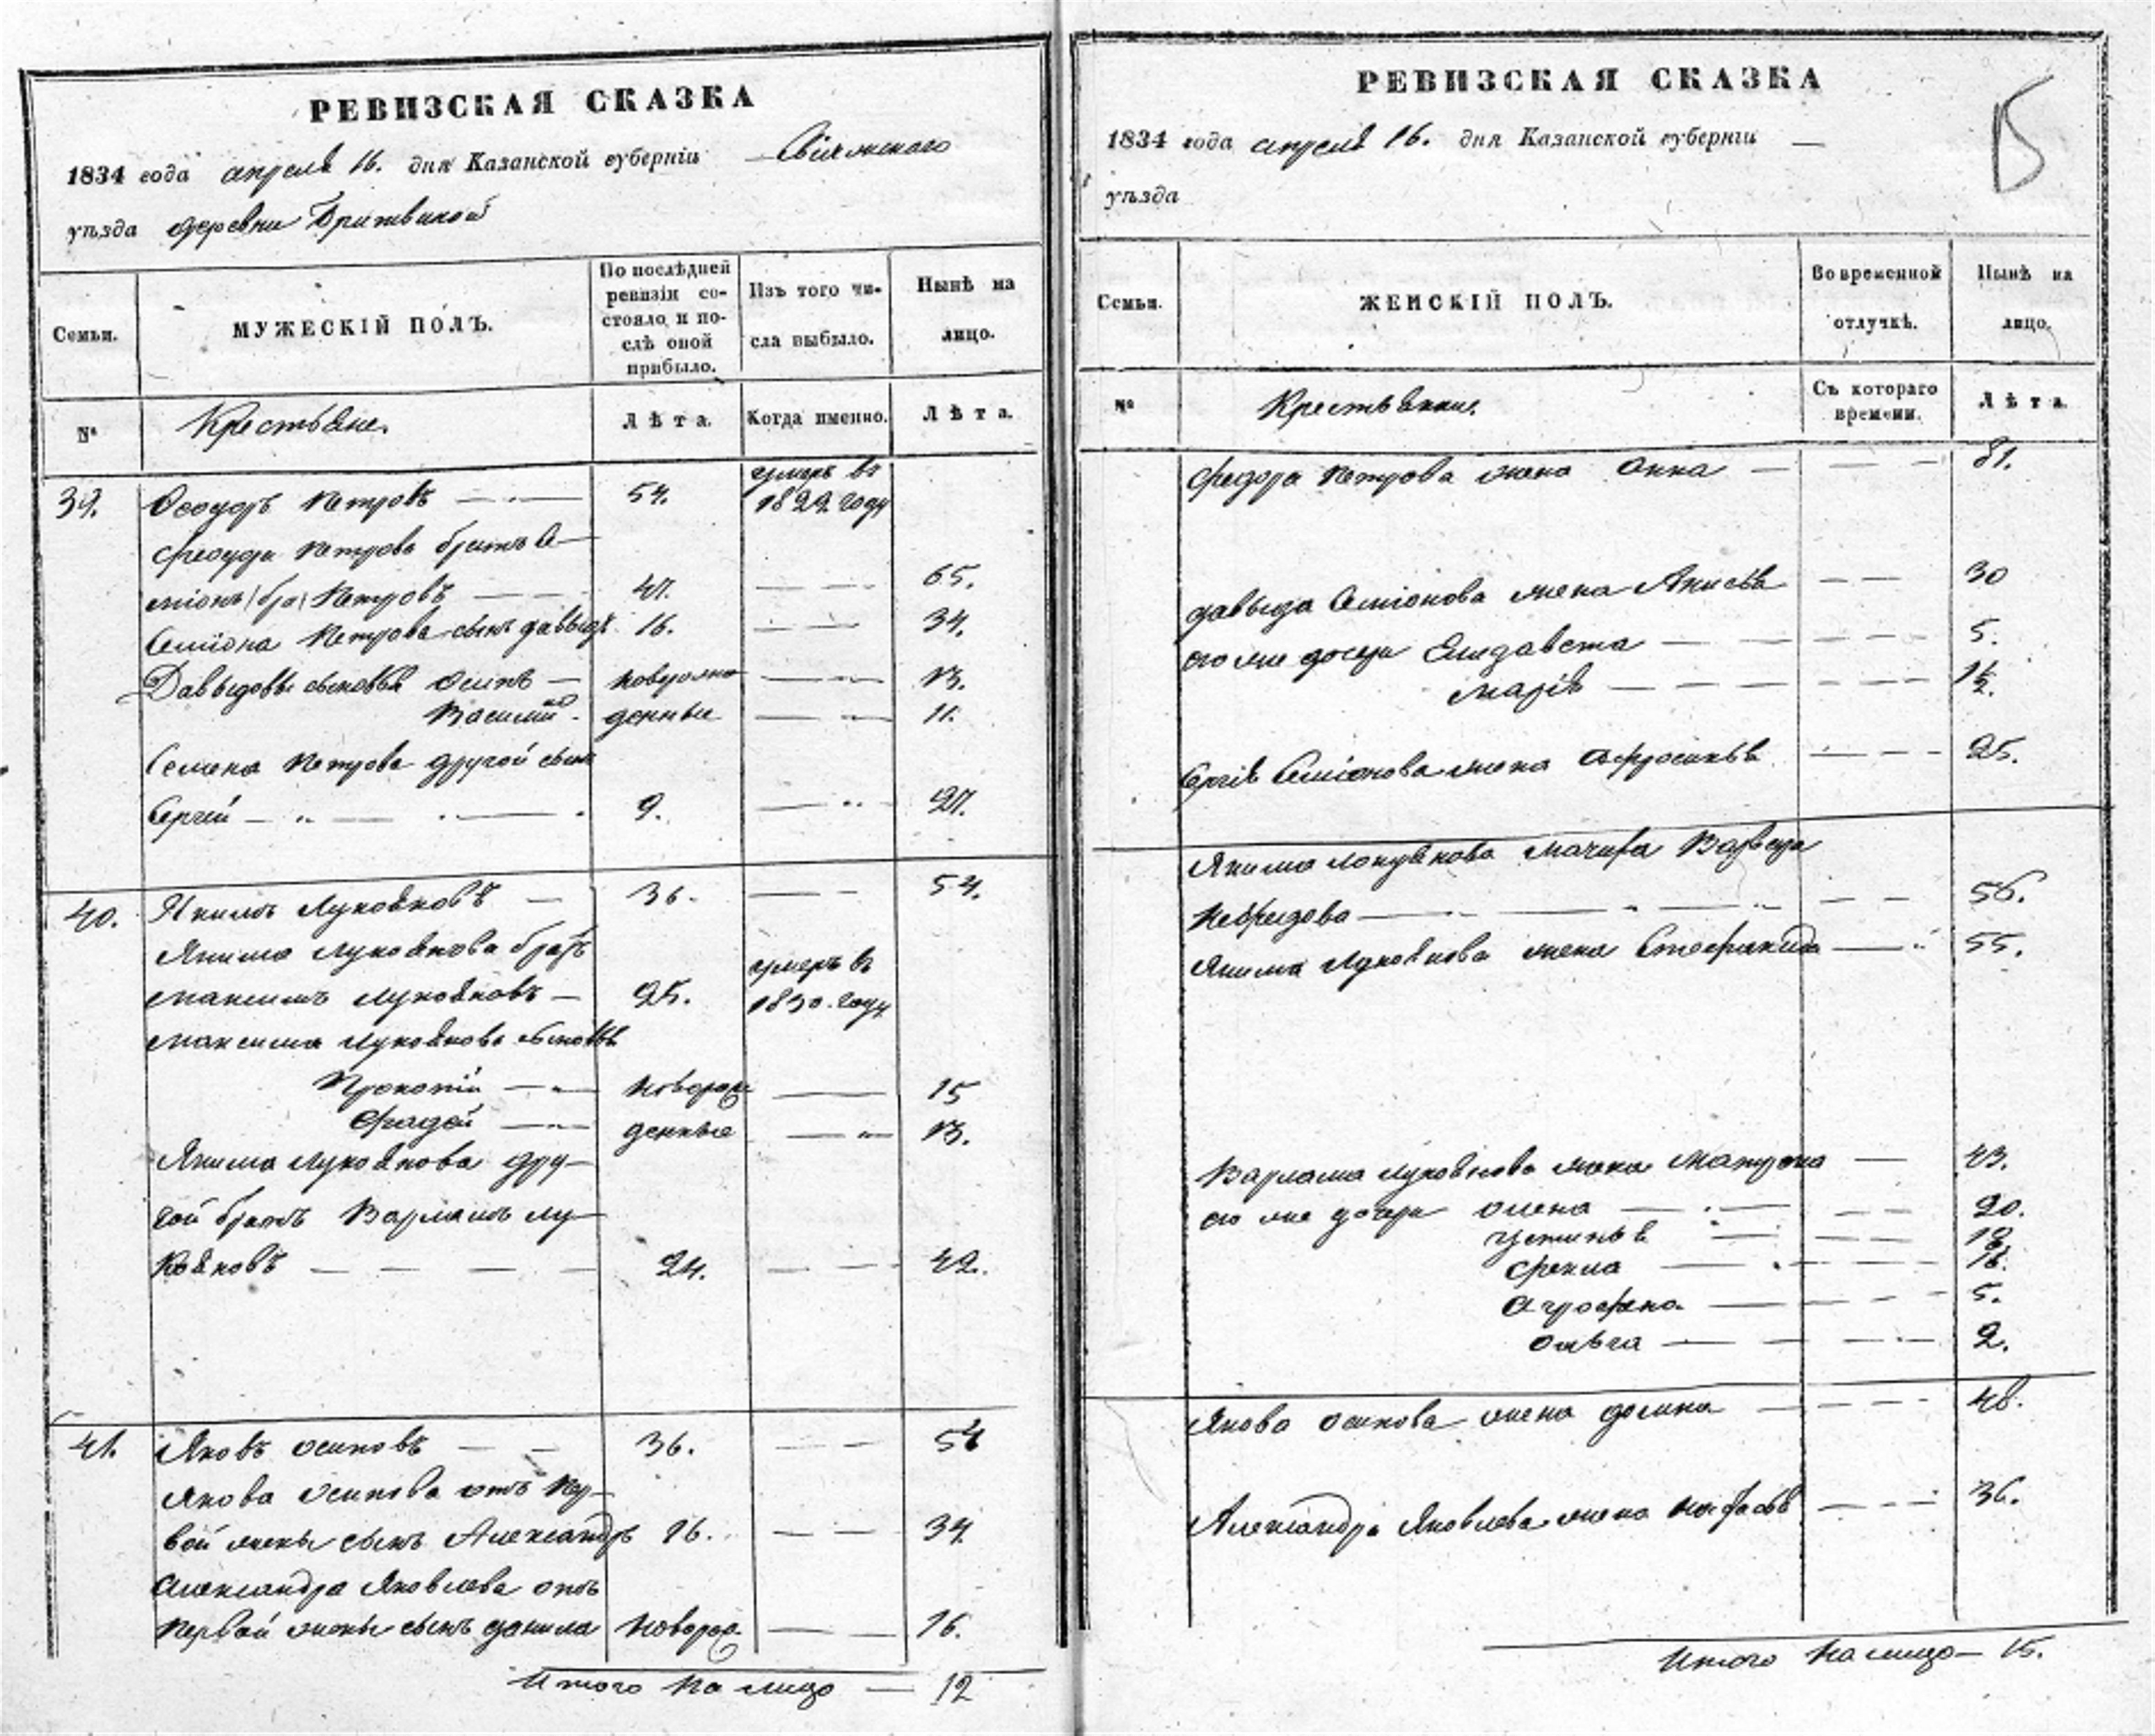 РЕВИЗСКАЯ СКАЗКА
1834 года апреля 16. дня Казанской губерніи Свіяжскаго
уѣзда деревни Бритвиной
Семьи.
МУЖЕСКІЙ ПОЛЪ.
По послѣдней ревизіи со-
стояло, и по-
слѣ оной
прибыло.
Изъ того чи-
сла выбыло.
Нынѣ на
лицо.
№
Крестьяне.
Лѣта.
Когда именно.
Лѣта.
39. Ѳеодоръ Петровъ 54. умеръ въ
1822 году
Феодора Петрова братъ Се-
міонъ Петровъ 47. 65.
Семіона Петрова сынъ давыдъ 16. 34.
Давыдовы сыновья осипъ новорож 13.
Василий денные 11.
Семена Петрова другой сынъ
Сергей 9. 27.
40. Якимъ Лукояновъ 36. 54.
Якима Лукоянова братъ
умеръ въ
максимъ лукояновъ 25. 1830. году
максима лукоянова сыновья
Прокопій новорож 15
Фадей денные 13.
Якима лукоянова дру-
гой братъ Варламъ лу-
кояновъ 24. 42.
41. Яковъ осиповъ 36. 54
Якова осипова отъ пер-
вой жены сынъ Александръ 16. 34.
Александра Яковлева отъ
первой жены сынъ данила новорож. 16.
Итого на лицо — 12
РЕВИЗСКАЯ СКАЗКА
1834 года апреля 16. дня Казанской губерніи
уѣзда
Семьи.
ЖЕНСКІЙ ПОЛЪ.
Во временной
отлучкѣ.
Нынѣ на
лицо.
№
Крестьянки.
Съ котораго
времени.
Лѣта.
Федора Петрова жена Анна 81.
давыда Семіонова жена Анисья 30
его же дочери Елизавета 5.
марія 1½.
Сергія Семіонова жена Афросинья 25.
Якима локуянова мачиха Варвара
Нефедова 56.
Якима Лукоянова жена Стефанида 55.
Варлама лукоянова жена Матрена 43.
его же дочери олена 20.
устинья 18
фекла 16.
Агрофена 5.
ольга 2.
Якова осипова жена домна 48.
Александра Яковлева жена Настасья 36.
Итого на лицо — 15.